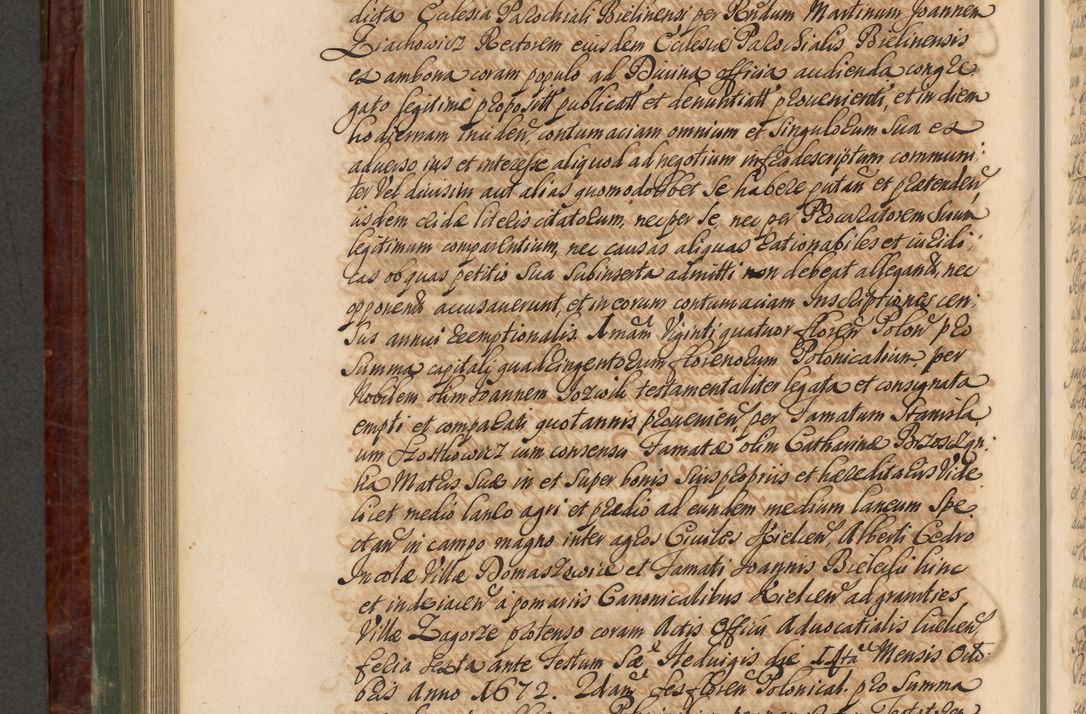 dicta Ecclesia Parochiali Bielinensi per Rndum Martinum Joannem
Ziachowicz Rectorem eiusdem Ecclesiæ Parochialis Bielinensis
ex ambona coram populo ad Divina officia audienda congre
gato legitime proposit publicatt et denuntiatt provenienti, et in diem
hodiernam inciden, contumaciam omnium et singulorum sua ex
adverso ius et interesse aliquod ad negotium infrascriptum communi
ter vel divisim aut alias quomodolibet se habere putan et prætenden
iisdem literis citatorum, nec per se, nec per Procuratorem suum
legitimum comparentium, nec causas aliquas rationabiles et iuridi
cas ob quas petitio sua subinserta admitti non debeat allegand, nec
opponend accusaverunt, et in eorum contumaciam Inscriptiones cen
sus annui reemptionalis Imam Viginti quatuor floren Polon pro
summa capitali quadringentorum florenorum Polonicalium, per
Nobilem olim Joannem Jozwik testamentaliter legata et consignata
empti et comparati quotannis provenien, per Famatum Stanisla
um cum consensu Famatæ olim Catharinæ
ka Matris suæ in et super bonis suis propriis et hæreditariis Vide
licet medio laneo agri et prædio ad eundem medium laneum spe
ctan in campo magno inter agros Civiles Kielcen Alberti Cedro
Incolæ Villæ Domaszowice et Famati Joannis Bieleski hinc
et inde iacen à pomariis Canonicalibus Kielcen ad granities
Villæ Zagorze protenso coram Actis Officii Advocatialis Kielcen
feria sexta ante Festum Sæ Hedvigis die 14ta Mensis Octo
bris Anno 1672. 2dam floren Polonical. pro summa